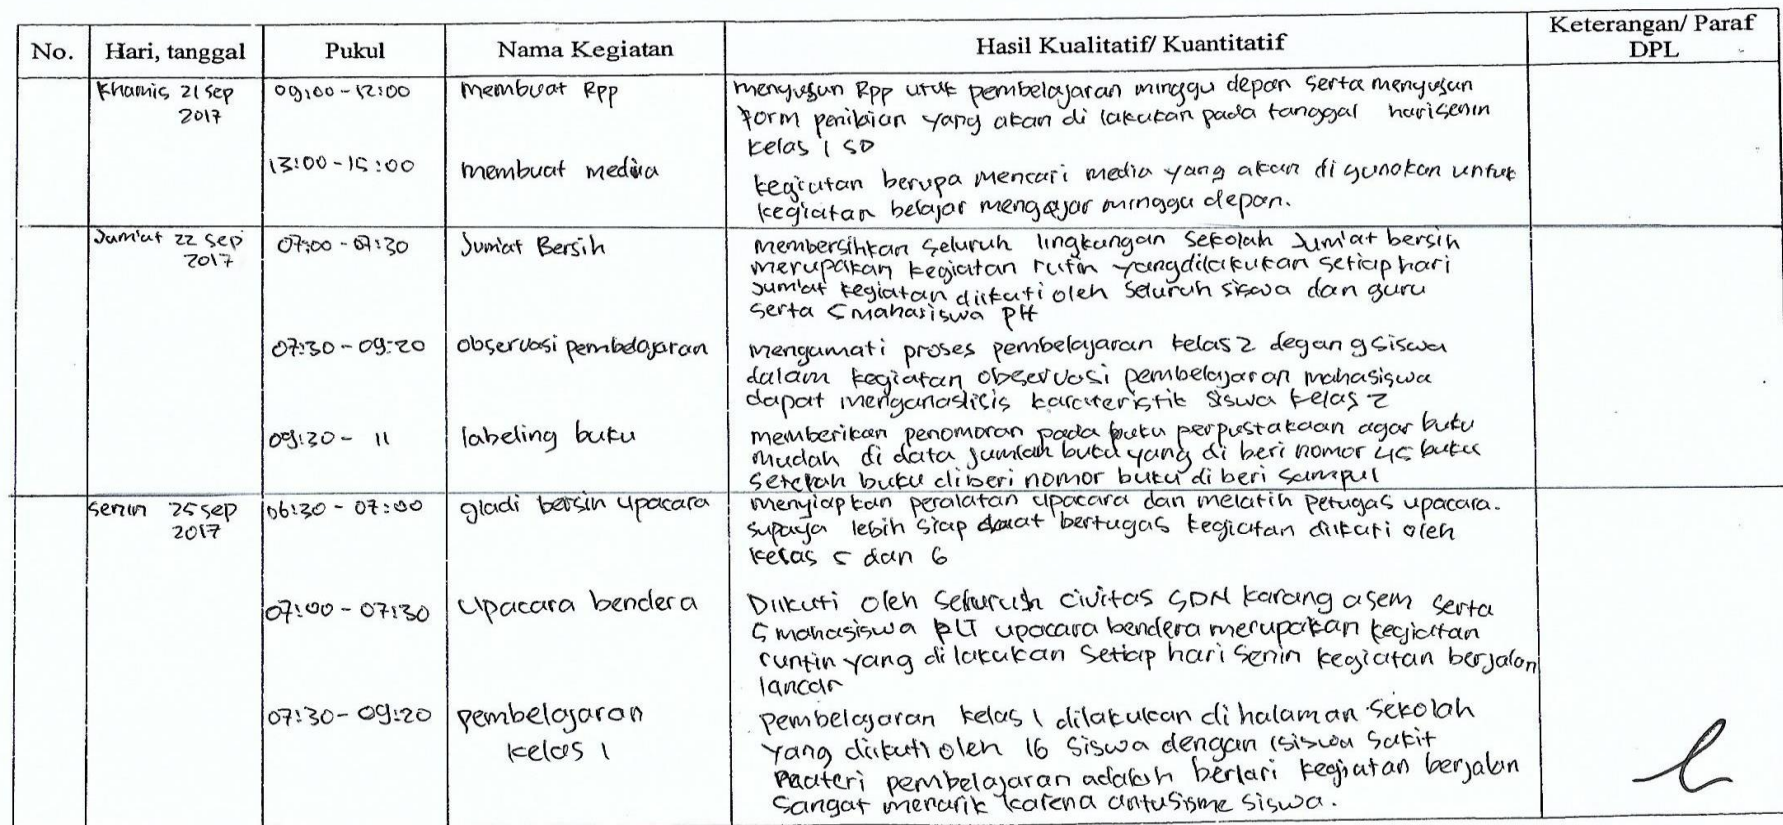 No. Hari, tanggal Pukul Nama Kegiatan Hasil Kualitatif/ Kuantitatif Keterangan/ Paraf DPL
Khamis 21 Sep 2017
09:00 - 12:00
membuat Rpp
menyusun Rpp utuk pembelajaran minggu depan serta menyusun
form penilaian yang akan di lakukan pada tanggal hari senin
kelas 1 SD
13:00 - 15:00
membuat media
kegiatan berupa mencari media yang akan di gunakan untuk
kegiatan belajar mengajar minggu depan.
Jum'at 22 Sep 2017
07:00 - 07:30
Jum'at Bersih
membersihkan seluruh lingkungan sekolah Jum'at bersih
merupakan kegiatan rutin yang dilakukan setiap hari
Jum'at kegiatan diikuti oleh seluruh siswa dan guru
serta 5 mahasiswa
07:30 - 09:20
observasi pembelajaran
mengamati proses pembelajaran kelas 2 degan 9 siswa
dalam kegiatan observasi pembelajaran mahasiswa
dapat karateristik siswa kelas 2
09:30 - 11
labeling buku
memberikan penomoran pada buku perpustakaan agar buku
mudah di data jumlah buku yang di beri nomor 45 buku
setelah buku diberi nomor buku di beri sampul
Senin 25 Sep 2017
06:30 - 07:00
gladi bersih upacara
menyiapkan peralatan upacara dan melatih petugas upacara.
supaya lebih siap saat bertugas kegiatan diikuti oleh
kelas 5 dan 6
07:00 - 07:30
Upacara bendera
Diikuti oleh seluruh civitas SDN karang asem serta
5 mahasiswa PLT upacara bendera merupakan kegiatan
runtin yang di lakukan setiap hari senin kegiatan berjalan
lancar
07:30 - 09:20
pembelajaran
kelas 1
pembelajaran kelas 1 dilakukan di halaman sekolah
yang diikuti oleh 16 siswa dengan 1 siswa sakit
materi pembelajaran adalah berlari kegiatan berjalan
sangat menarik karena antusisme siswa.